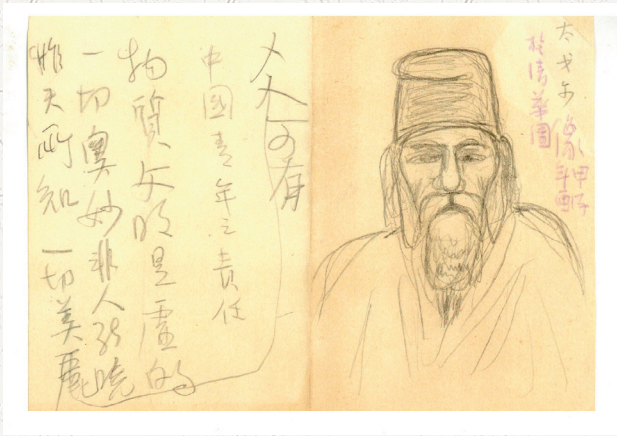 太戈尔像 甲子年画
於清華園
人人可有
中國青年之責任
物質文明是虛的
一切奧妙非人能曉
昨天所知一切美麗